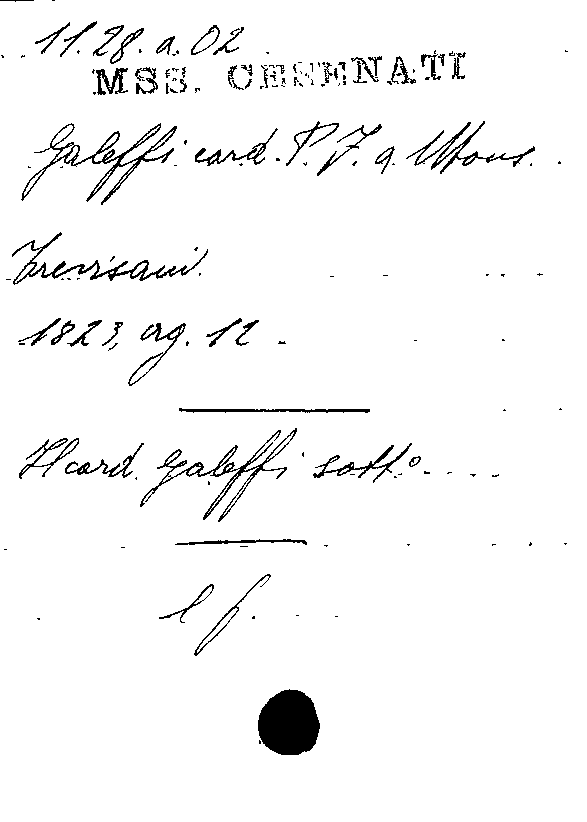 11.28.a.02
MSS. CESENATI
Galeffi card. P. F. a Mons.
Trevisani.
1823, ag. 12
Il card. Galeffi sott.º
l f.